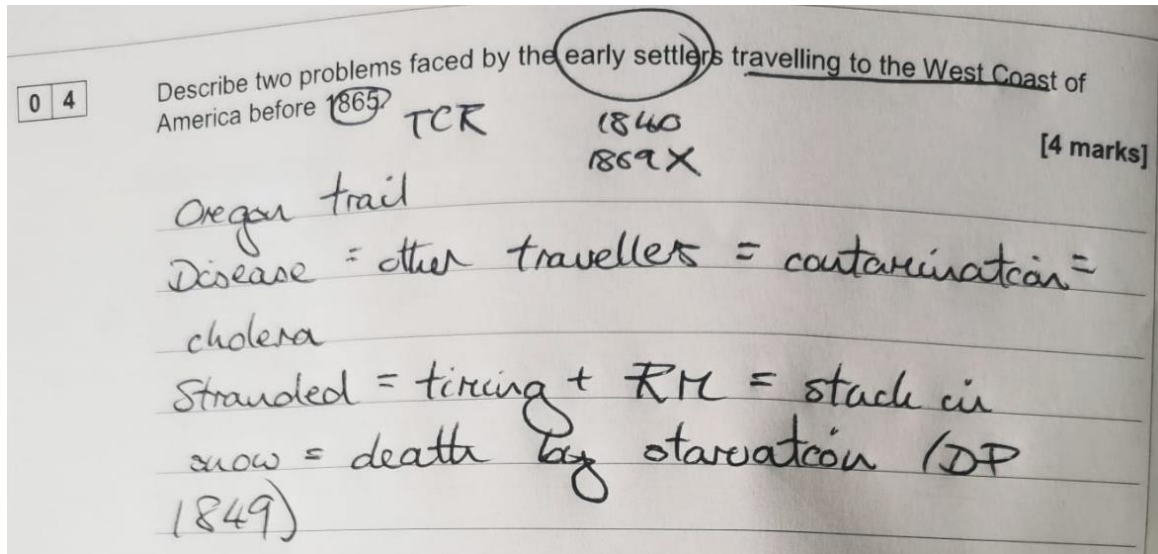 0 4
Describe two problems faced by the early settlers travelling to the West Coast of
America before 1865?
TCR 1840
1869 X
[4 marks]
Oregon trail
Disease = other travellers = contamination =
cholera
Stranded = timing + RM = stuck in
snow = death by starvation (DP
1849)